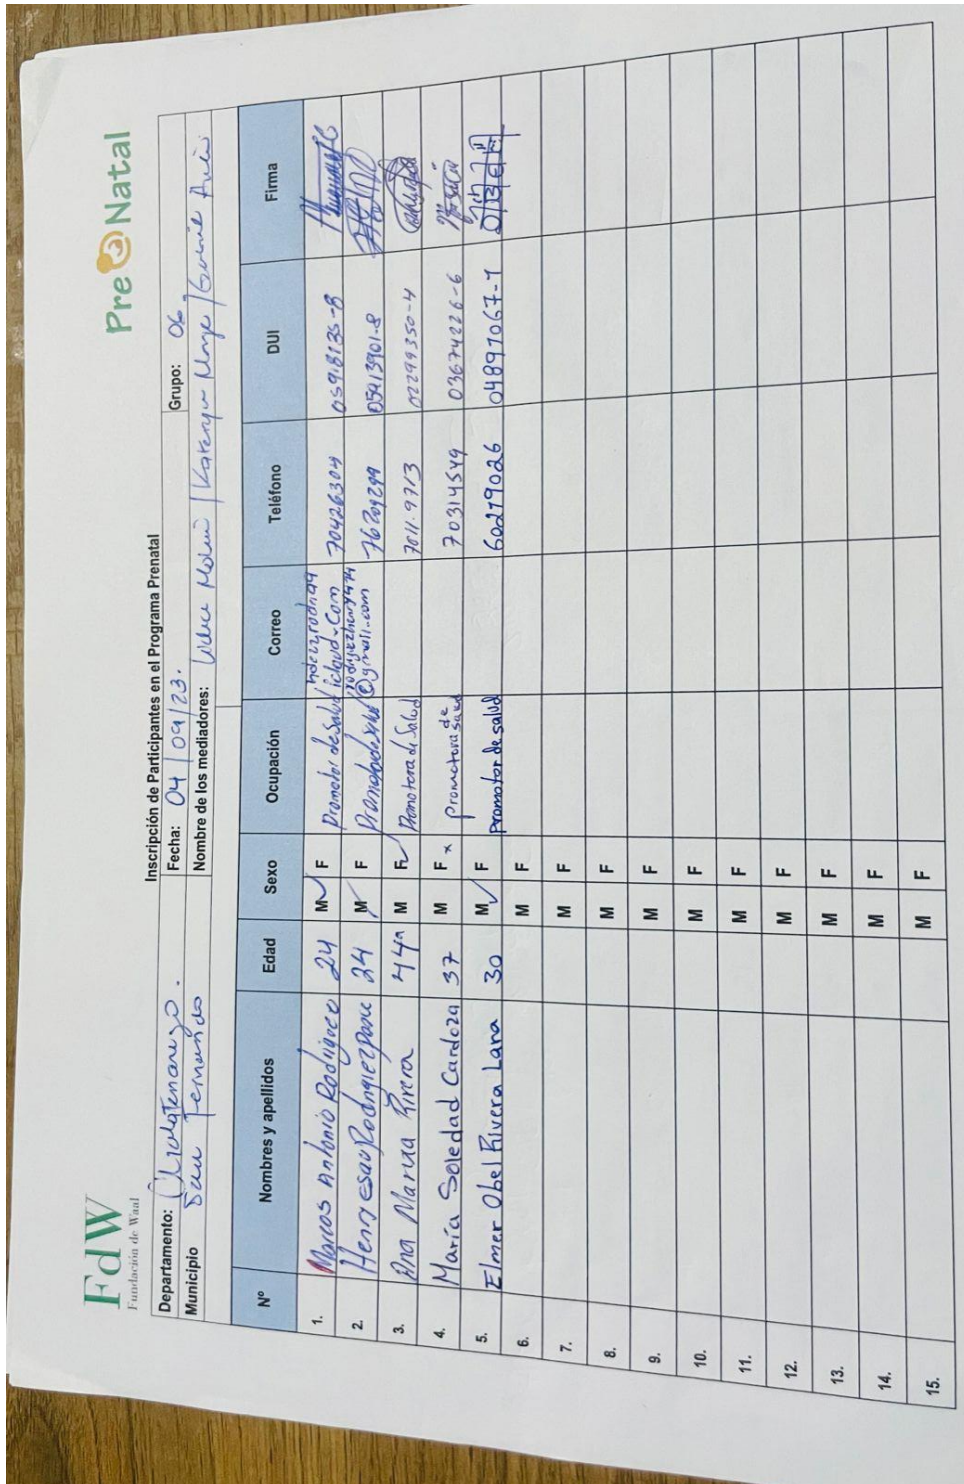 FdW
Fundación de Waal
Pre Natal
Inscripción de Participantes en el Programa Prenatal
Departamento: Chalatenango. Fecha: 04/09/23. Grupo: 06.
Municipio San Fernando Nombre de los mediadores:
Nº Nombres y apellidos Edad Sexo Ocupación Correo Teléfono DUI Firma
1. Marcos Antonio Rodriguez 24 M F Promotor de Salud 70426304 05918135-8
2. Henry Esau Rodriguez 24 M F @gmail.com 76209299 05413901-8
3. Ana Marixa Rivera 44 M F Promotora de Salud 7011-9713 02299350-4
4. María Soledad Cardoza 37 M F x promotora de salud 70314549 03674226-6
5. Elmer Obel Rivera Lara 30 M F promotor de salud 60279026 04897067-1
6. M F
7. M F
8. M F
9. M F
10. M F
11. M F
12. M F
13. M F
14. M F
15. M F